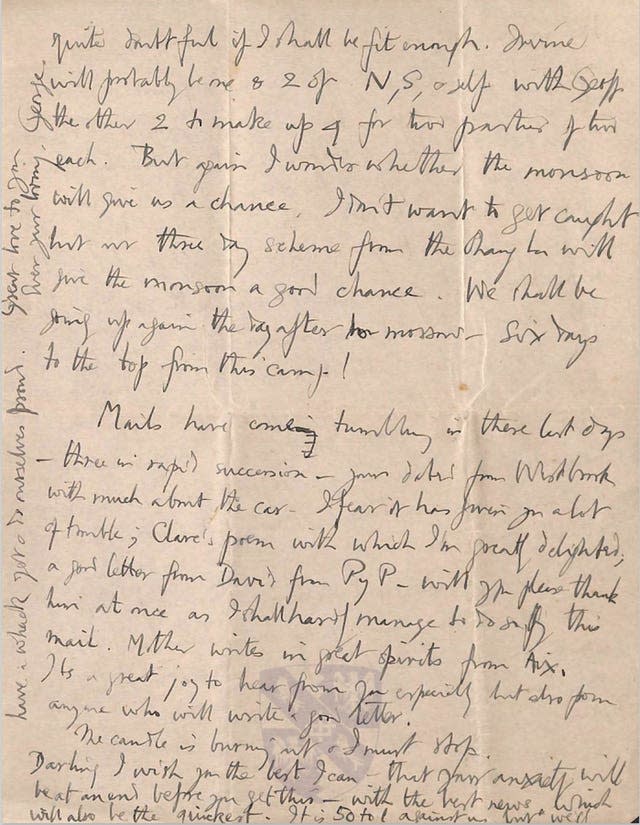 quite doubtful if I shall be fit enough. Irvine
will probably be one & 2 of N, S, & self with Geoff
the other 2 to make up 4 for two parties of two
each. But again I wonder whether the monsoon
will give us a chance. I don't want to get caught
but our three day scheme from the Chang La will
give the monsoon a good chance. We shall be
going up again the day after tomorrow – Six days
to the top from this camp!
Mails have come tumbling in these last days
– three in rapid succession – yours dated from Westbrook
with much about the car – I fear it has given you a lot
of trouble; Clare's poem with which I'm greatly delighted;
a good letter from David from PyP – will you please thank
him at once as I shall hardly manage to do so by this
mail. Mother writes in great spirits from Aix.
Its a great joy to hear from you especially but also from
anyone who will write a good letter.
The candle is burning out & I must stop.
Darling I wish you the best I can – that your anxiety will
be at an end before you get this – with the best news. Which
will also be the quickest. It is 50 to 1 against us but we'll
have a whack yet & do ourselves proud. Great love to you.
Ever your loving, George.